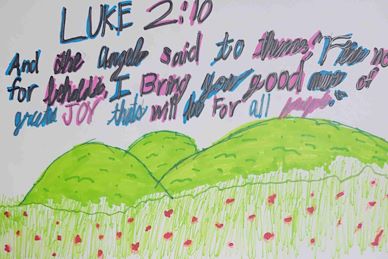 LUKE 2:10
And the Angels said to them; Fear no
for behold, I Bring you good news of
great JOY that will be for all people."